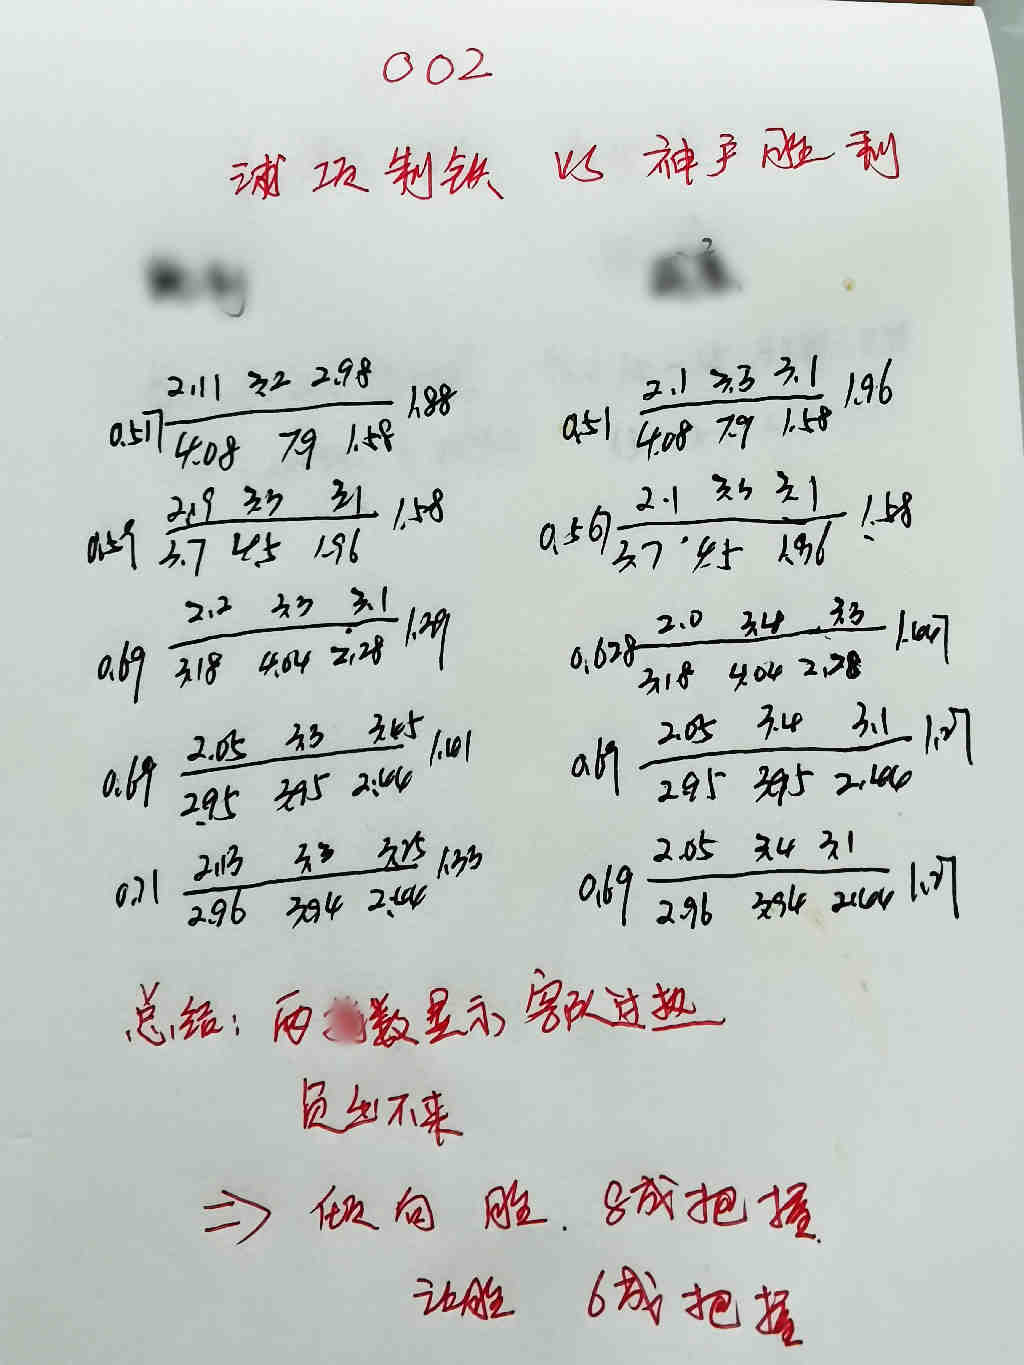 002
浦项制铁 VS 神户胜利
2.11 3.2 2.98
0.517 1.88
4.08 7.9 1.58
2.1 3.3 3.1
0.51 1.96
4.08 7.9 1.58
2.19 3.3 3.1
0.59 1.58
3.7 4.5 1.96
2.1 3.3 3.1
0.567 1.58
3.7 4.5 1.96
2.2 3.3 3.1
0.69 1.29
3.18 4.04 2.28
2.0 3.4 3.3
0.628 1.447
3.18 4.04 2.28
2.05 3.3 3.45
0.69 1.41
2.95 3.95 2.44
2.05 3.4 3.1
0.69 1.27
2.95 3.95 2.44
2.13 3.3 3.25
0.71 1.33
2.96 3.94 2.44
2.05 3.4 3.1
0.69 1.27
2.96 3.94 2.44
总结: 两数显示客队过热
负出不来
⇒ 倾向 胜. 8成把握.
让胜 6成把握